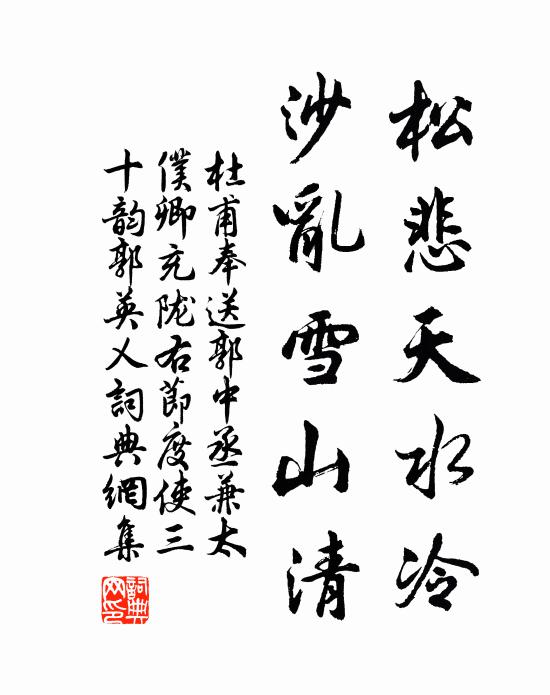 松悲天水冷
沙亂雪山清
杜甫奉送郭中丞兼太
僕卿充陇右節度使三
十韵郭英乂詞典網集
詞典
网印